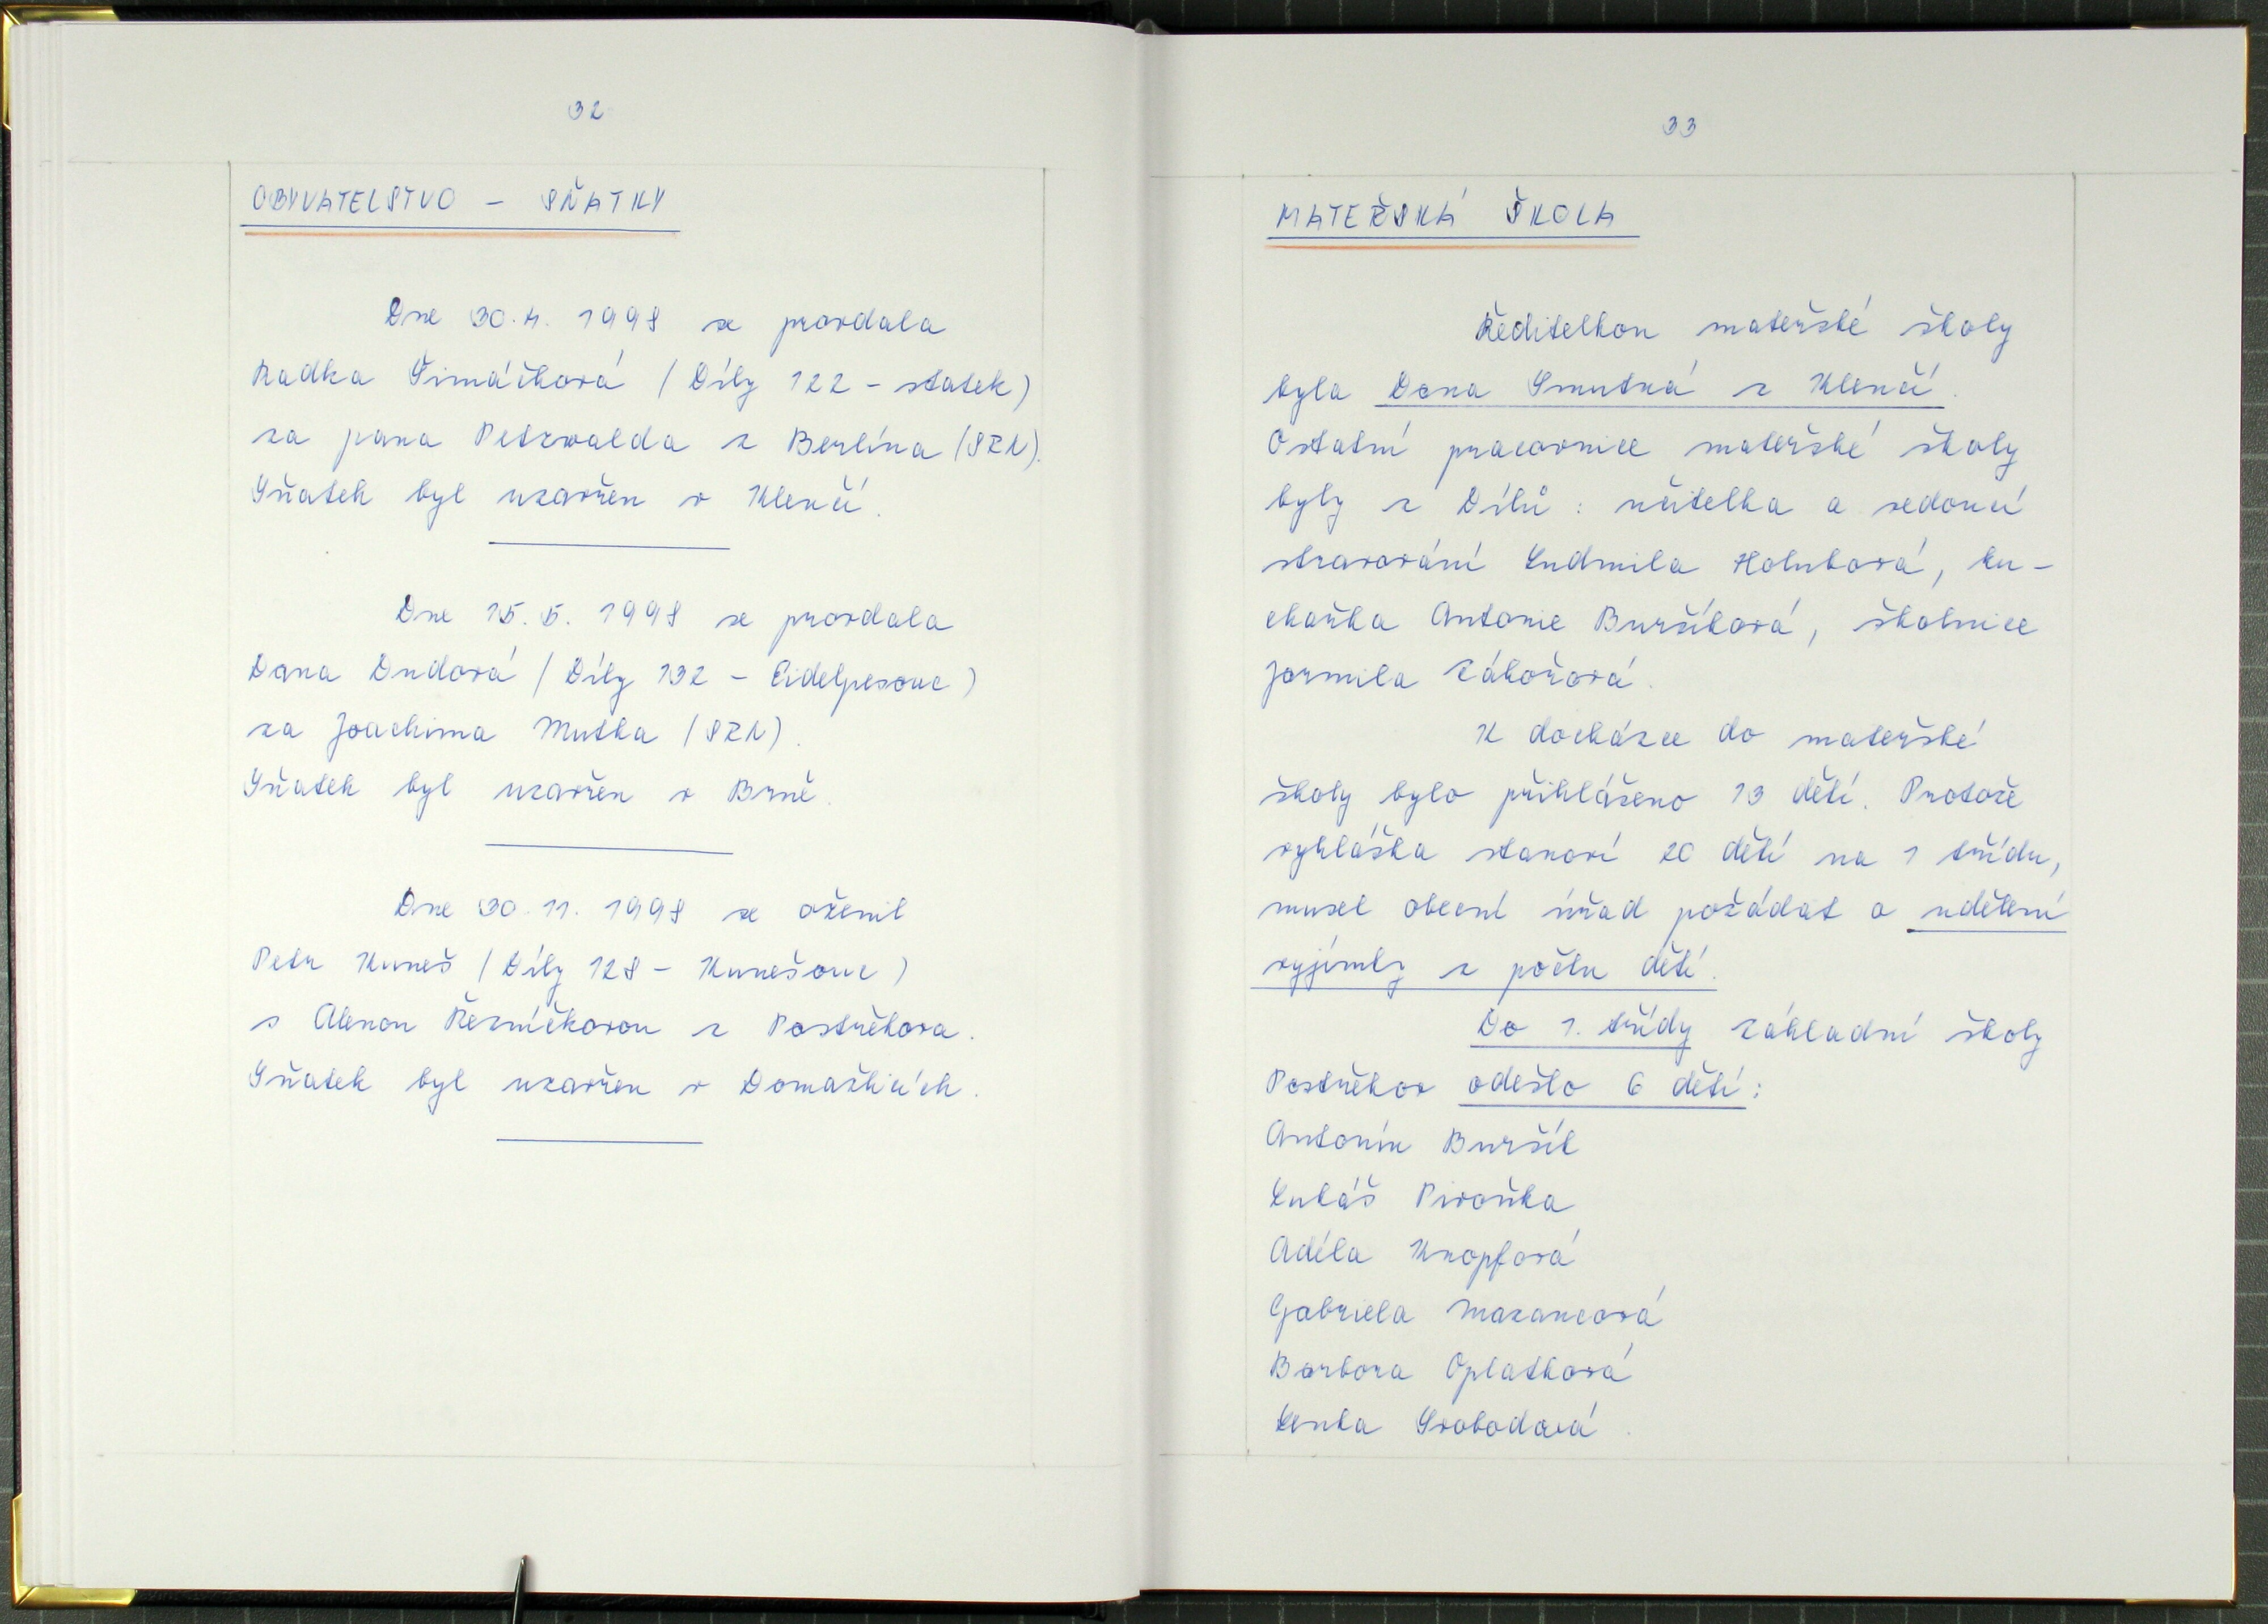 32
OBYVATELSTVO – SŇATKY
Dne 30.4. 1998 se provdala
Radka Šimáčková (Díly 122 – statek)
za pana Petzwalda z Berlína (SRN).
Sňatek byl uzavřen v Klenčí.
Dne 15.5. 1998 se provdala
Dana Dudová (Díly 132 – Eidelpesouc)
za Joachima Mutka (SRN).
Sňatek byl uzavřen v Brně.
Dne 30.11. 1998 se oženil
Petr Kuneš (Díly 128 – Kunešouc)
s Alenou Řezníčkovou z Postřekova.
Sňatek byl uzavřen v Domažlicích.
33
MATEŘSKÁ ŠKOLA
Ředitelkou mateřské školy
byla Dana Smutná z Klenčí.
Ostatní pracovnice mateřské školy
byly z Dílů: učitelka a vedoucí
stravování Ludmila Holubová, ku-
chařka Antonie Buršíková, školnice
Jarmila Záhořová.
K docházce do mateřské
školy bylo přihlášeno 13 dětí. Protože
vyhláška stanoví 20 dětí na 1 třídu,
musel obecní úřad požádat o udělení
vyjímky z počtu dětí.
Do 1. třídy základní školy
Postřekov odešlo 6 dětí:
Antonín Buršík
Lukáš Pivoňka
Adéla Knopfová
Gabriela Mazancová
Barbora Oplatková
Lenka Svobodová.